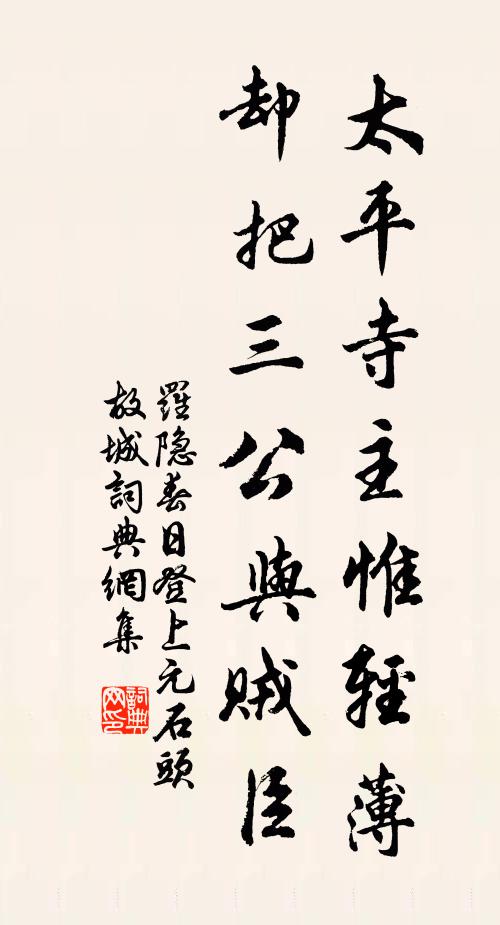 太平寺主惟輕薄
却把三公與賊臣
羅隐春日登上元石頭
故城詞典網集
詞典网印